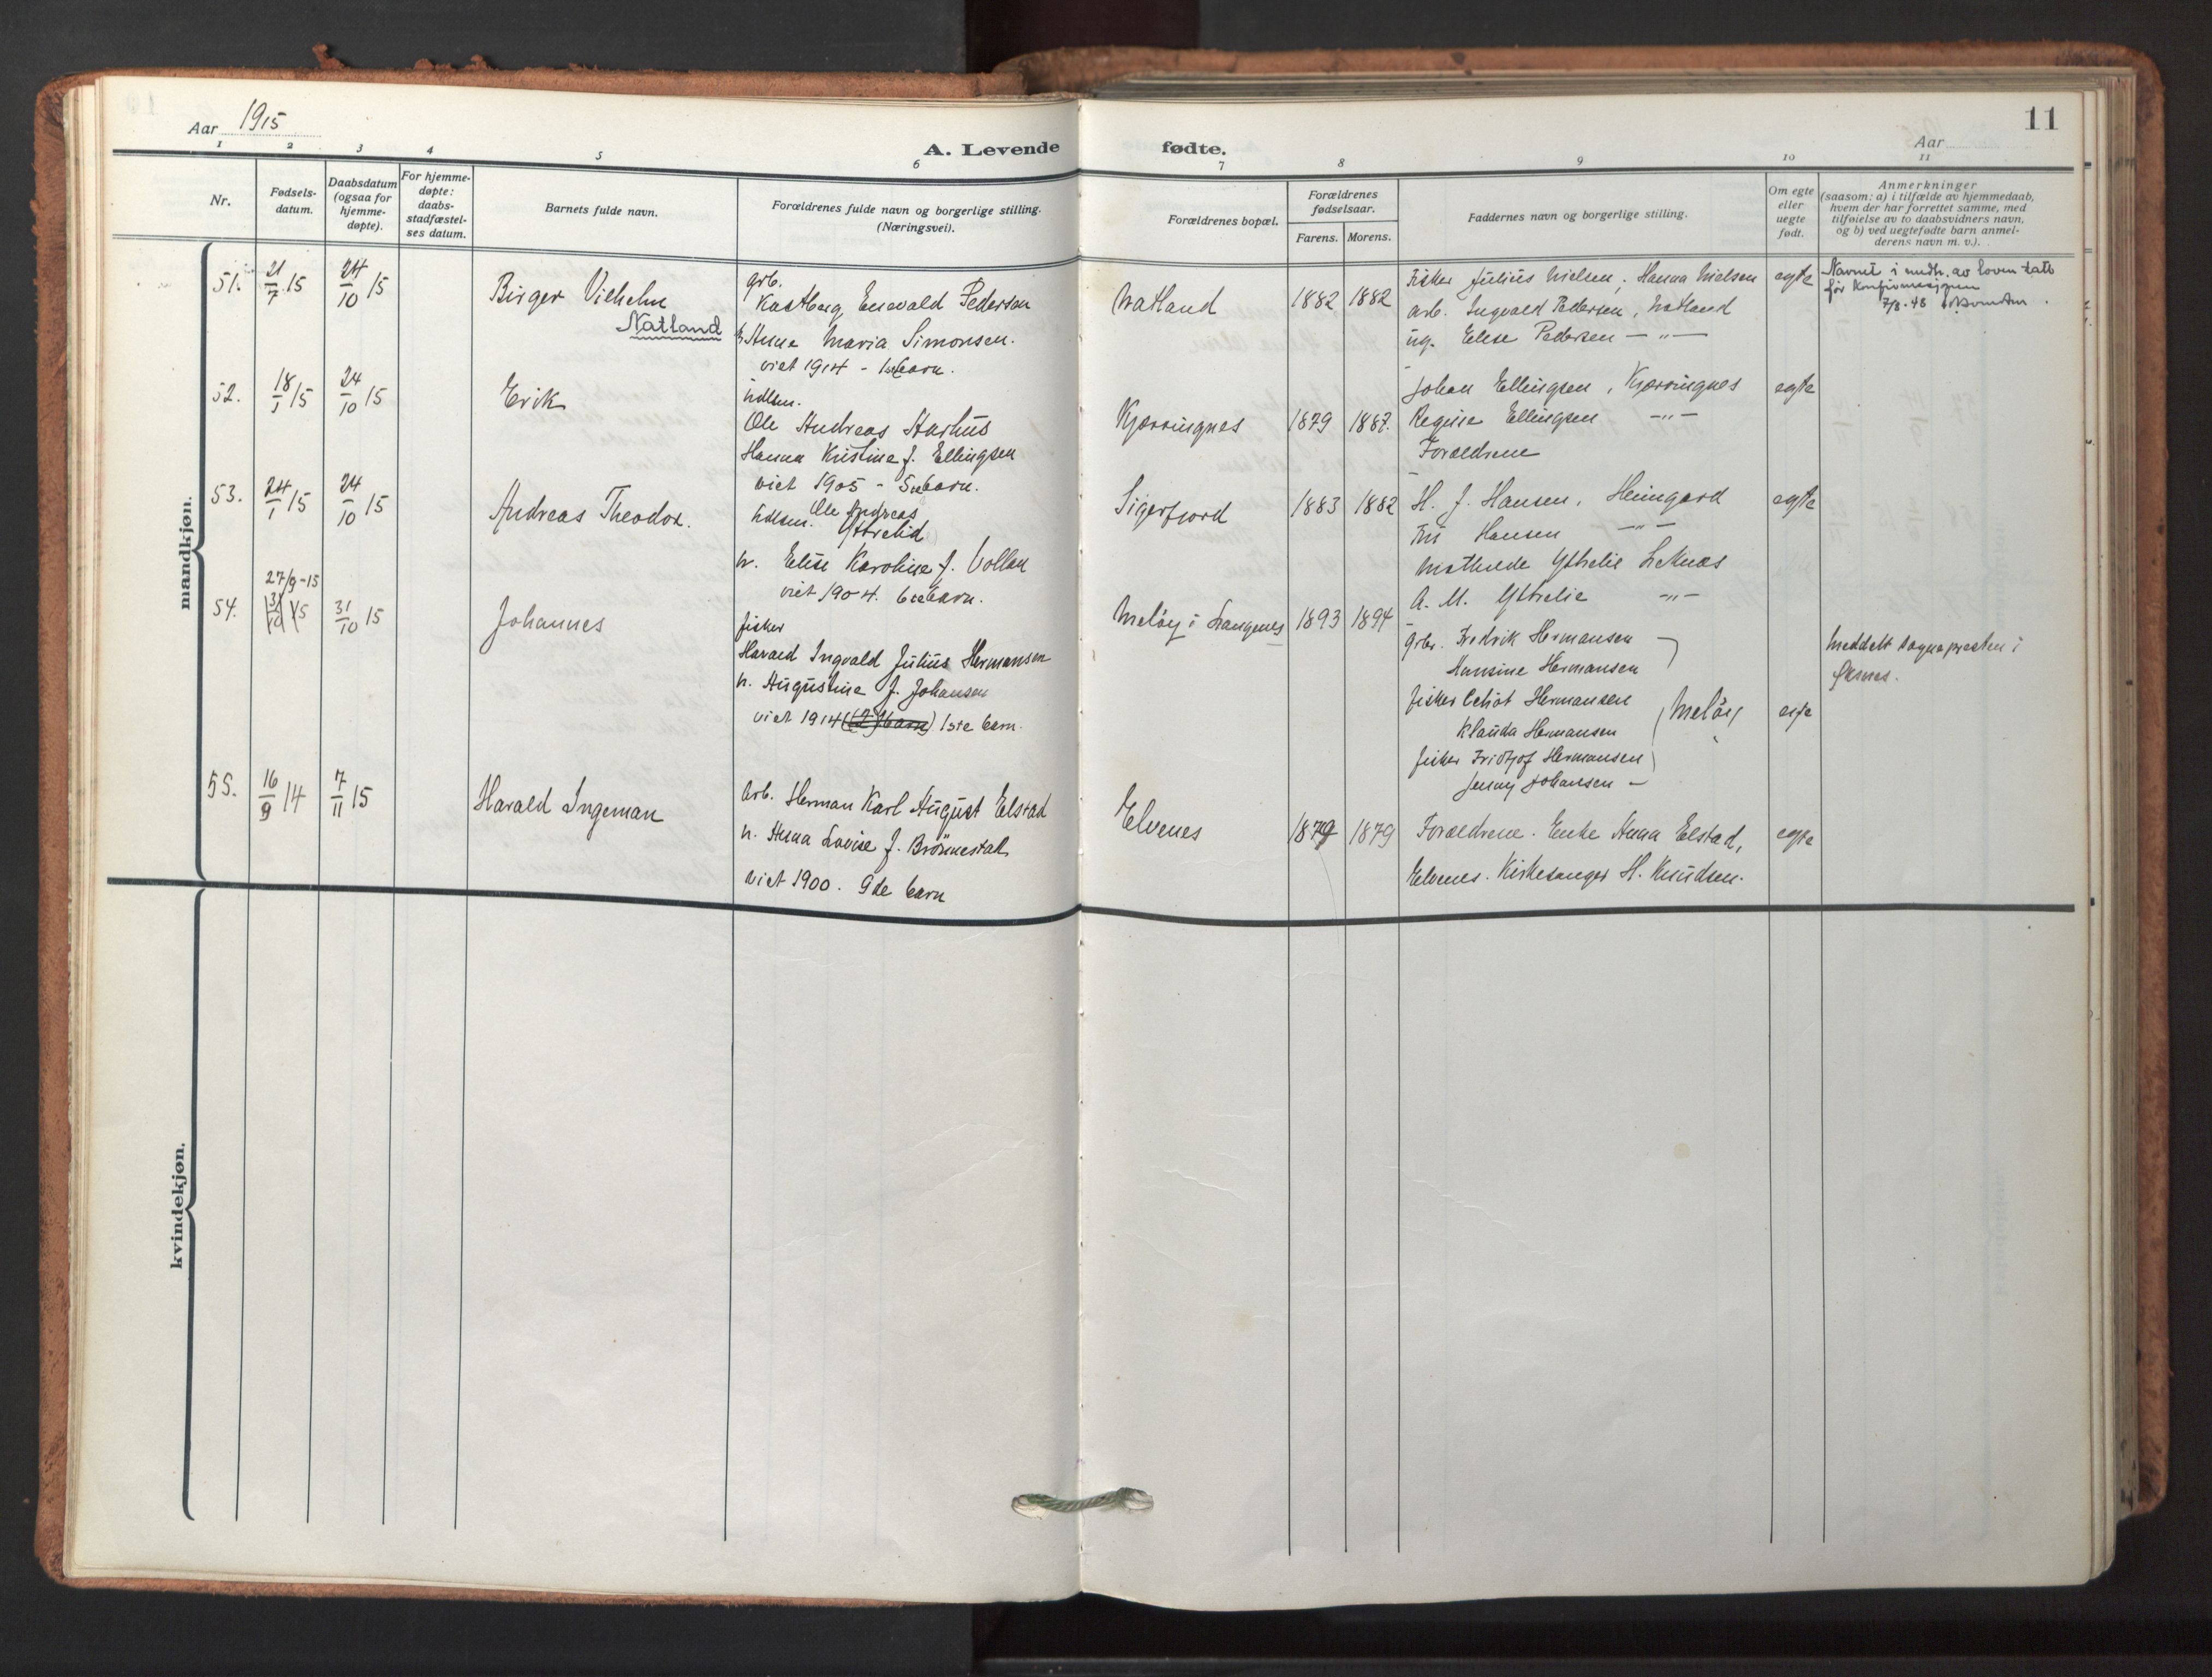 Aar 1915
A. Levende
fødte.
Aar
11
1 2 3 4 5 6 7 8 9 10 11
Nr.
Fødsels-
datum.
Daabsdatum
(ogsaa for
hjemme-
døpte).
For hjemme-
døpte:
daabs-
stadfæstel-
ses datum.
Barnets fulde navn.
Forældrenes fulde navn og borgerlige stilling.
(Næringsvei).
Forældrenes bopæl.
Forældrenes
fødselsaar.
Farens. Morens.
Faddernes navn og borgerlige stilling.
Om egte
eller
uegte
født.
Anmerkninger
(saasom: a) i tilfælde av hjemmedaab,
hvem der har forrettet samme, med
tilføielse av to daabsvidners navn,
og b) ved uegtefødte barn anmel-
derens navn m. v.).
mandkjøn.
51. 21/7 15 24/10 15
Birger Vilhelm
Natland
grb.
Kastberg Enevald Pedersen
h. Anne Maria Simonsen.
viet 1914 - 1ste barn.
Natland
1882 1882
Fisker Julius Nielsen, Hanna Nielsen
arb. Ingvald Pedersen, Natland
ug. Elise Pedersen — " —
egte
Navnet i medh. av loven tatt
før konfirmasjonen
7/8. 48
52. 18/1 15 24/10 15
Erik
hdlsm.
Ole Andreas Aarhus
Hanna Kristine f. Ellingsen
viet 1905 - 5te barn.
Kjørringnes
1879 1887.
Johan Ellingsen, Kjørringnes
Regine Ellingsen — " —
Forældrene
egte
53. 24/1 15 24/10 15
Andreas Theodor.
hdlsm. Ole Andreas
Yttrelid
h. Elise Karoline f. Vollan
viet 1904. 6te barn.
Sigerfjord
1883 1882
H. J. Hansen, Heimgard
Fru Hansen — " —
Mathilde Yttrelie Leknæs
A. M. Yttrelie — " —
egte
27/9-15
54. 31/10 15 31/10 15
Johannes
fisker
Harald Ingvald Julius Hermansen
h. Augustine f. Johansen
viet 1914 1ste barn.
Meløy i Langenes
1893 1894
Grbr. Fredrik Hermansen
Hansine Hermansen
fisker Hermansen
Klauda Hermansen
Meløy
fisker Fridtjof Hermansen
Jenny Johansen —
egte
Meddelt sognepresten i
Øksnes.
55. 16/9 14 7/11 15
Harald Ingeman
Arb. Herman Karl August Elstad
h. Anna Lovise f. Brönnestad
viet 1900. 9de barn
Elvenes
1879 1879
Forældrene. Enke Anna Elstad,
Elvenes. Kirkesanger H. Knudsen.
egte
kvindekjøn.